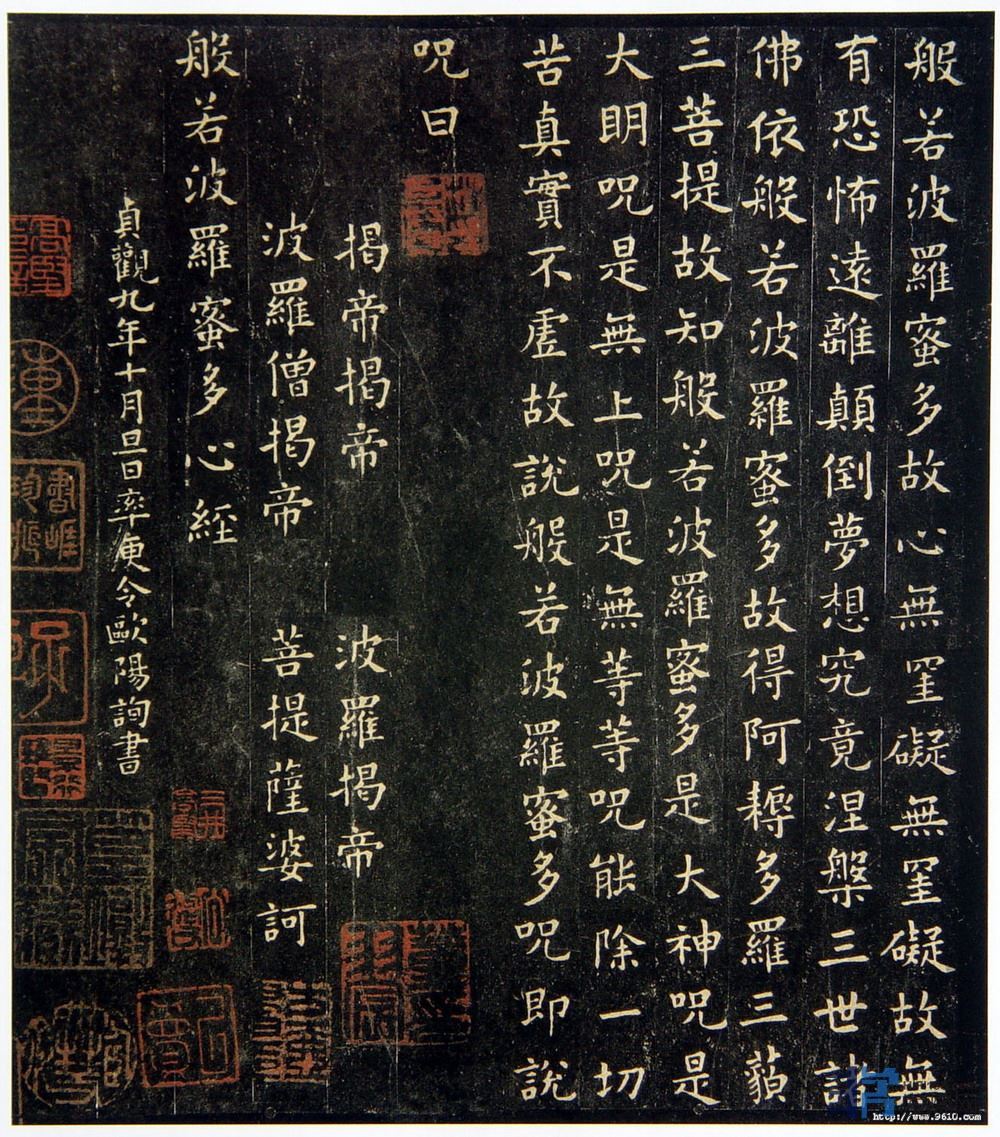 般若波羅蜜多故心無罣礙無罣礙故無
有恐怖遠離顛倒夢想究竟涅槃三世諸
佛依般若波羅蜜多故得阿耨多羅三藐
三菩提故知般若波羅蜜多是大神呪是
大明呪是無上呪是無等等呪能除一切
苦真實不虛故說般若波羅蜜多呪即說
呪曰
揭帝揭帝 波羅揭帝
波羅僧揭帝 菩提薩婆訶
般若波羅蜜多心經
貞觀九年十月旦日率更令歐陽詢書
http://www.9610.com